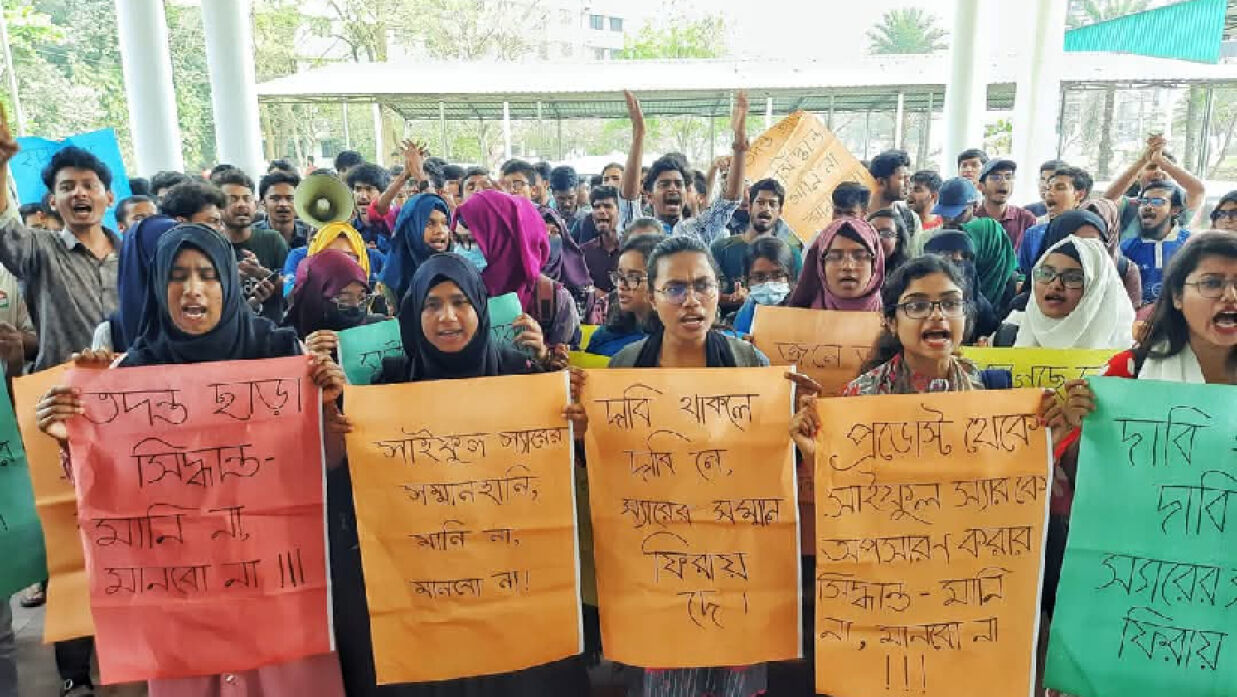 তদন্ত ছাড়া
সিদ্ধান্ত-
মানি না,
মানবো না !!!
সাইফুল স্যারের
সম্মানহানি,
মানি না,
মানবো না!
দাবি থাকলে
দাবি নে,
স্যারের সম্মান
ফিরায়
দে।
প্রভোস্ট থেকে
সাইফুল স্যারকে
অপসারণ করার
সিদ্ধান্ত - মানি
না, মানবো না
!!!
দাবি
দাবি
স্যারের
ফিরায়